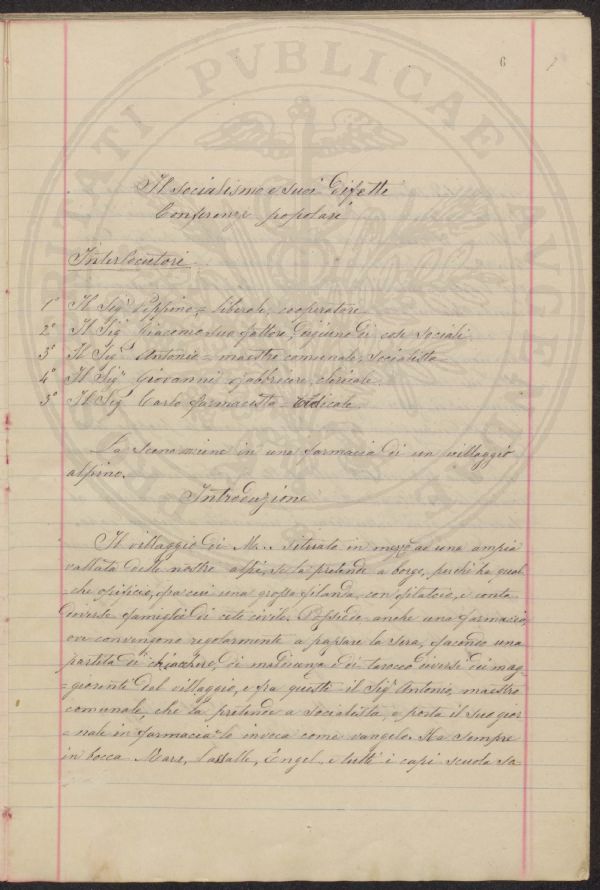 6
PVBLICAE
Il socialismo e suoi difetti
Conferenze popolari
Interlocutori
1° Il Sig.r Peppino = liberale, cooperatore
2° Il Sig.r Giacomo suo fattore, digiuno di cose sociali
3° Il Sig.r Antonio = maestro comunale, socialista
4° Il Sig.r Giovanni fabbriciere, clericale
5° Il Sig.r Carlo farmacista radicale.
La scena in una farmacia di un villaggio
alpino.
Introduzione
Il villaggio di M... situato in mezzo ad una ampia
vallata delle nostre alpi, se la pretende a borgo, perchè ha qual-
-che opificio, fra cui una grossa filanda, con filatoio, e conta
diverse famiglie di ceto civile. Possiede anche una farmacia,
ove convengono regolarmente a passare la sera, facendo una
partita di chiacchere, di maldicenza e di tarocco diversi dei mag-
=giorenti del villaggio, e fra questi il Sig.r Antonio, maestro
comunale, che la pretende a socialista, e porta il suo gior
-nale in farmacia lo invoca come vangelo. Ha sempre
in bocca Marx, Lassalle, Engel, e tutti i capi scuola so